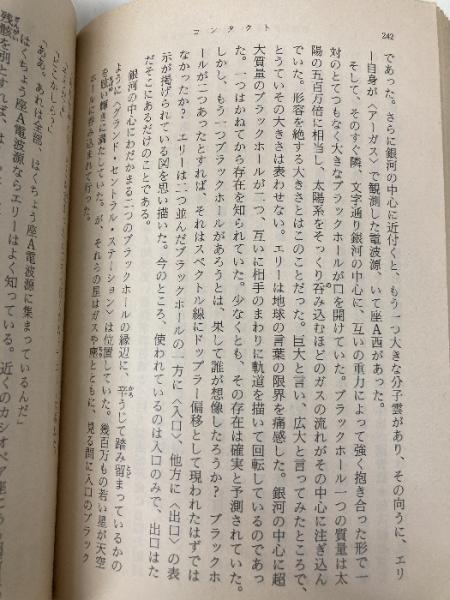 242
コンタクト
であった。さらに銀河の中心に近付くと、もう一つ大きな分子雲があり、その向うに、エリ
ー自身が〈アーガス〉で観測した電波源、いて座A西があった。
そして、そのすぐ隣、文字通り銀河の中心に、互いの重力によって強く抱き合った形で一
対のとてつもなく大きなブラックホールが口を開けていた。ブラックホール一つの質量は太
陽の五百万倍に相当し、太陽系をそっくり呑み込むほどのガスの流れがその中心に注ぎ込ん
でいた。形容を絶する大きさとはこのことだった。巨大と言い、広大と言ってみたところで、
とうていその大きさは表わせない。エリーは地球の言葉の限界を痛感した。銀河の中心に超
大質量のブラックホールが二つ、互いに相手のまわりに軌道を描いて回転しているのであっ
た。一つはかねてから存在を知られていた。少なくとも、その存在は確実と予測されていた。
しかし、もう一つブラックホールがあろうとは、果して誰が想像したろうか? ブラックホ
ールが二つあったとすれば、それはスペクトル線にドップラー偏移として現われたはずでは
なかったか? エリーは二つ並んだブラックホールの一方に〈入口〉、他方に〈出口〉の表
示が掲げられている図を思い描いた。今のところ、使われているのは入口のみで、出口はた
だそこにあるだけのことである。
銀河の中心にわだかまる二つのブラックホールの縁辺に、辛うじて踏み留まっているかの
ように〈グランド・セントラル・ステーション〉は位置していた。幾百万もの若い星が天空
を鋭い輝きに満たしていた。が、それらの星はガスや塵とともに、見る間に入口のブラック
ホールに呑み込まれて行った。
「どこかしら?」
「ああ。あれは全部、はくちょう座A電波源に集まっているんだ」
はくちょう座A電波源ならエリーはよく知っている。近くのカシオペア座
残骸を別とすれば、は